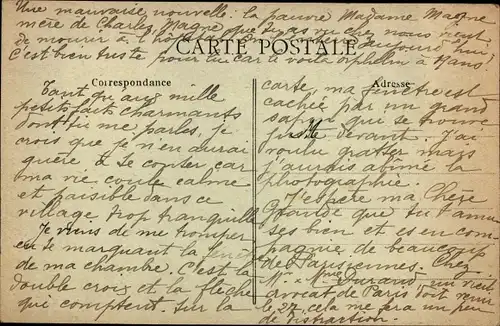 Une mauvaise nouvelle : la pauvre Madame Magne
mère de Charles Magne que tu as vu chez nous vient
de mourir à l'hôpital aujourd'hui
CARTE POSTALE
C'est bien triste pour lui car le voilà orphelin à 19 ans
Correspondance
Tant qu'aux mille
petits faits charmants
dont tu me parles, je
crois que je n'en aurai
guère à te conter car
ma vie coule calme
et paisible dans ce
village trop tranquille
Je viens de me tromper
en te marquant la
de ma chambre. C'est la
double croix et la flèche
qui comptent. sur la
Adresse
carte, ma fenêtre est
cachée par un grand
sapin qui se trouve
juste devant. J'ai
voulu gratter mais
j'aurais abîmé la
photographie.
J'espère ma Chère
que tu t'amu-
ses bien et es en com-
pagnie de beaucoup
de Parisiennes. Chez
Mr & Mme Durand un vieil
avocat de Paris doit venir
le 27, cela me fera un peu
de distraction.